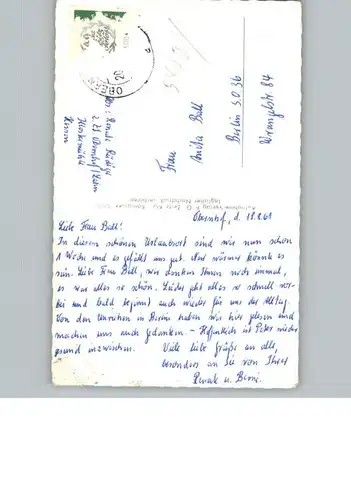 Frau
Anita Ball
Berlin S.O 36
Wrangelstr. 84
Obernhof, d. 18.8.61
Liebe Frau Ball!
In diesem schönen Urlaubsort sind wir nun schon
1 Woche und es gefällt uns gut. Nur wärmer könnte es
sein. Liebe Frau Ball, wir danken Ihnen noch einmal,
es war alles so schön. Leider geht alles so schnell vor-
bei und bald beginnt auch wieder für uns der Alltag.
Von den Unruhen in Berlin haben wir hier gelesen und
machen uns auch Gedanken. - Hoffentlich ist Peter wieder
gesund inzwischen. Viele liebe Grüße an alle,
besonders an Sie von Ihrer
Renate u. Berni.